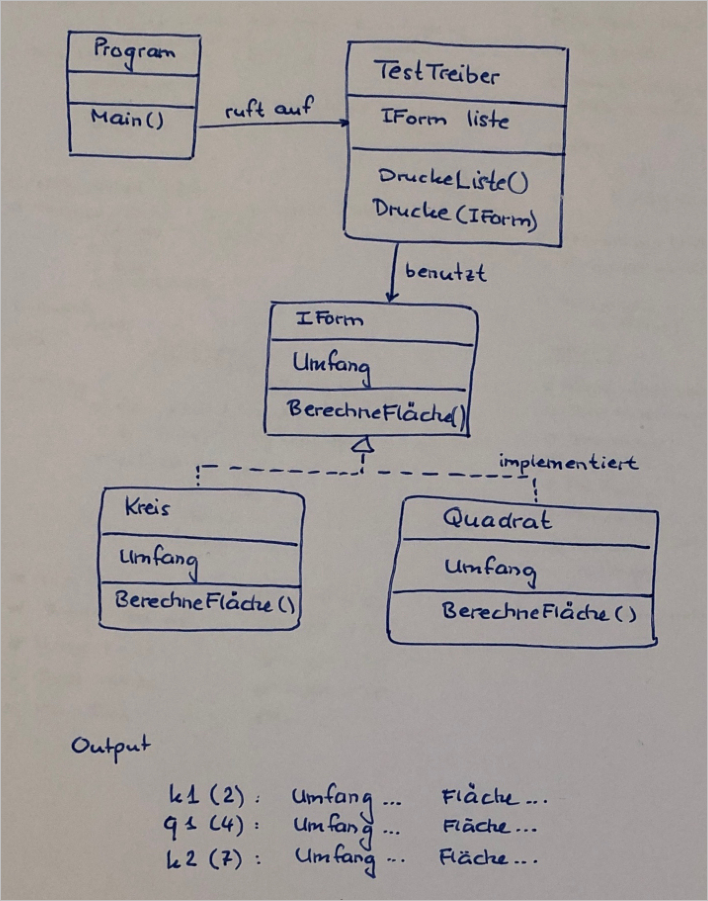 Program
Main()
ruft auf
TestTreiber
IForm liste
DruckeListe()
Drucke (IForm)
benutzt
IForm
Umfang
BerechneFläche()
implementiert
Kreis
Umfang
BerechneFläche()
Quadrat
Umfang
BerechneFläche()
Output
k1 (2): Umfang... Fläche...
q1 (4): Umfang... Fläche...
k2 (7): Umfang... Fläche...